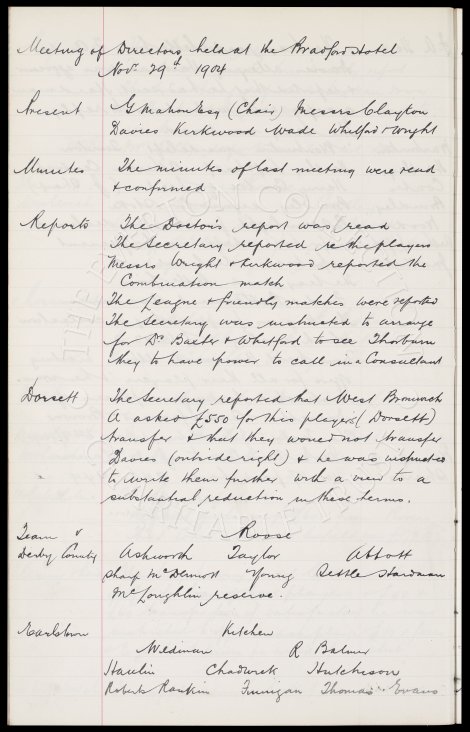 Meeting of Directors held at the Bradford Hotel
Nov. 29th 1904
Present G Mahon Esq (Chair) Messrs Clayton
Davies Kirkwood Wade Whitford & Wright
Minutes The minutes of last meeting were read
& confirmed
Reports The Doctor's report was read
The Secretary reported re the players
Messrs Wright & Kirkwood reported the
Combination match
The League & friendly matches were reported
The Secretary was instructed to arrange
for Dr Baxter & Whitford to see Thorburn
they to have power to call in a Consultant
Dorsett The Secretary reported that West Bromwich
A asked £550 for this players (Dorsett)
transfer & that they would not transfer
Davies (outside right) & he was instructed
to write them further with a view to a
substantial reduction in these terms.
Team v Roose
Derby County Ashworth Taylor Abbott
Sharp McDermott Young Settle Hardman
McLoughlin reserve.
Earlstown Kitchen
Wildman R Balmer
Haulin Chadwick Hutcheson
Roberts Rankin Finnigan Thomas Evans